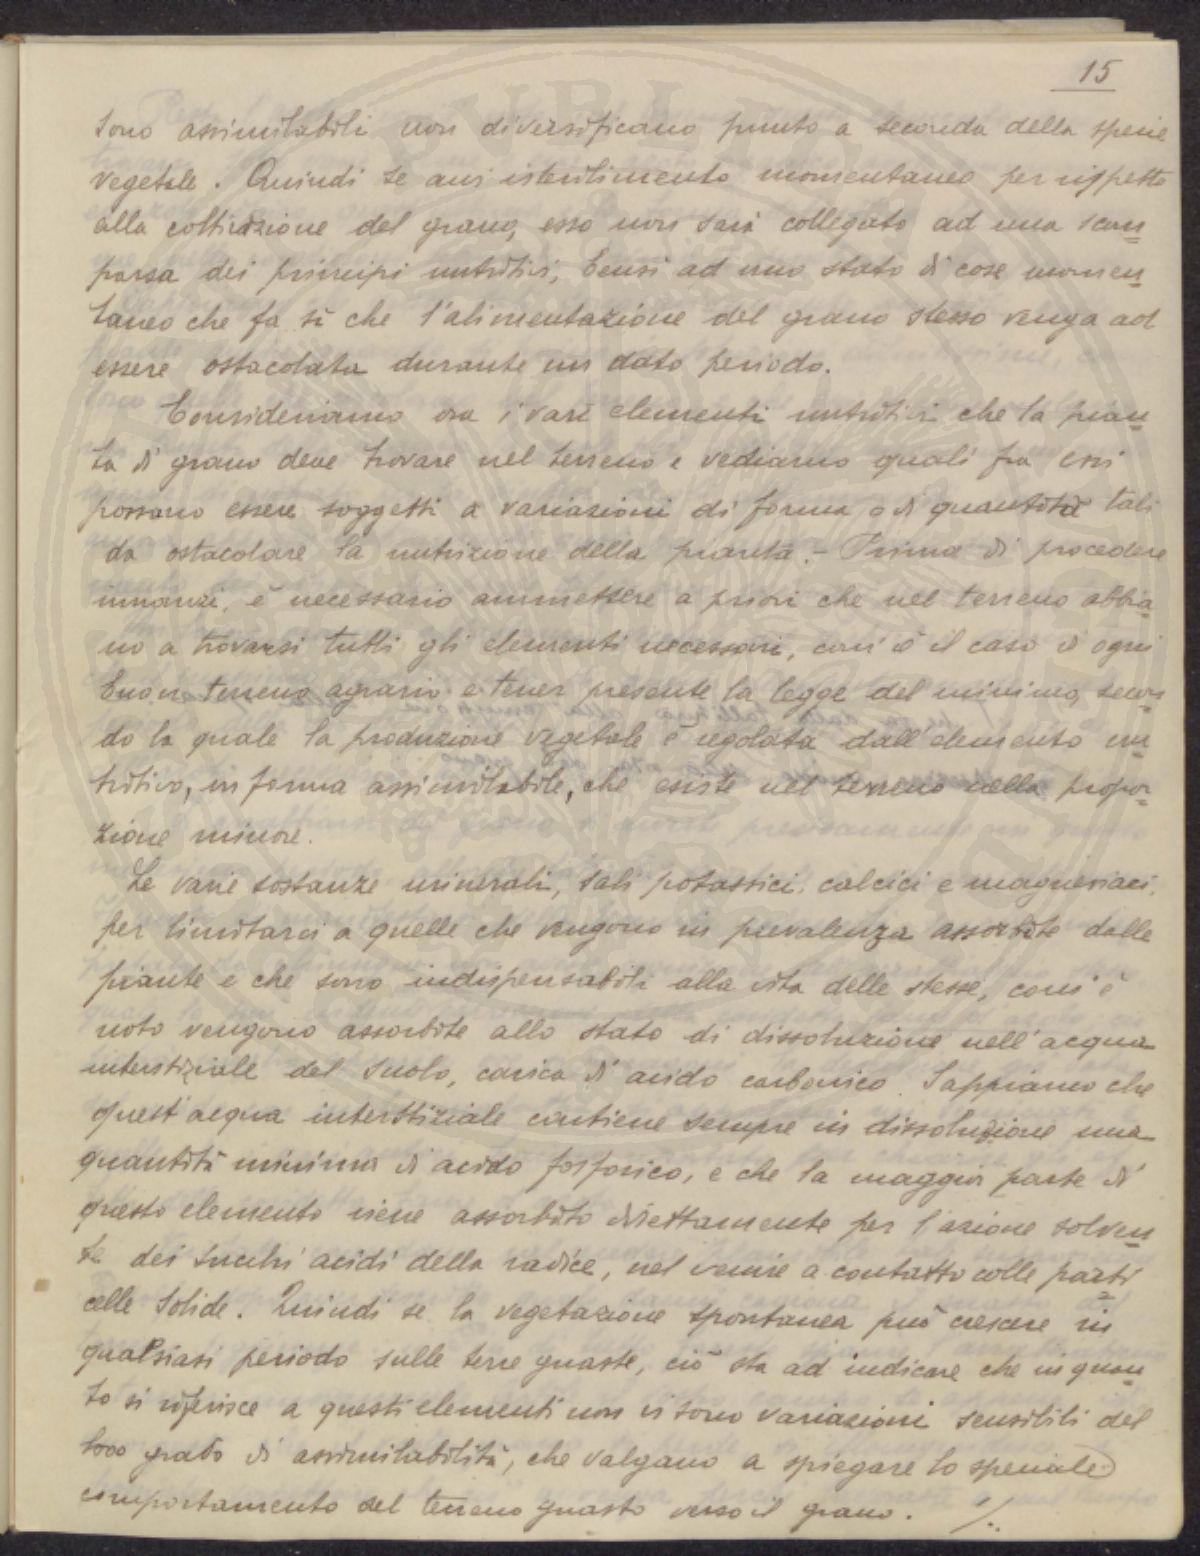 15
sono assimilabili non diversificano punto a seconda della specie
vegetale. Quindi se avvi isterilimento momentaneo per rispetto
alla coltivazione del grano, esso non sarà collegato ad una scom
parsa dei principi nutritivi, bensì ad uno stato di cose momen
taneo che fa sì che l'alimentazione del grano stesso venga ad
essere ostacolata durante un dato periodo.
Consideriamo ora i vari elementi nutritivi che la pian
ta di grano deve trovare nel terreno e vediamo quali fra essi
possano essere soggetti a variazioni di forma o di quantità tali
da ostacolare la nutrizione della pianta. - Prima di procedere
innanzi, è necessario ammettere a priori che nel terreno abbia
no a trovarsi tutti gli elementi necessari, com'è il caso d'ogni
buon terreno agrario e tener presente la legge del minimo, secon
do la quale la produzione vegetale è regolata dall'elemento nu
tritivo, in forma assimilabile, che esiste nel terreno nella propor
zione minore.
Le varie sostanze minerali, sali potassici, calcici e magnesiaci,
per limitarci a quelle che vengono in prevalenza assorbite dalle
piante e che sono indispensabili alla vita delle stesse, com'è
noto vengono assorbite allo stato di dissoluzione nell'acqua
interstiziale del suolo, carica di acido carbonico. Sappiamo che
quest'acqua interstiziale contiene sempre in dissoluzione una
quantità minima di acido fosforico, e che la maggior parte di
questo elemento viene assorbito direttamente per l'azione solven
te dei succhi acidi della radice, nel venire a contatto colle parti
celle solide. Quindi se la vegetazione spontanea può crescere in
qualsiasi periodo sulle terre guaste, ciò sta ad indicare che in quan
to si riferisce a questi elementi non vi sono variazioni sensibili del
loro grado di assimilabilità, che valgano a spiegare lo speciale
comportamento del terreno guasto verso il grano. ./.